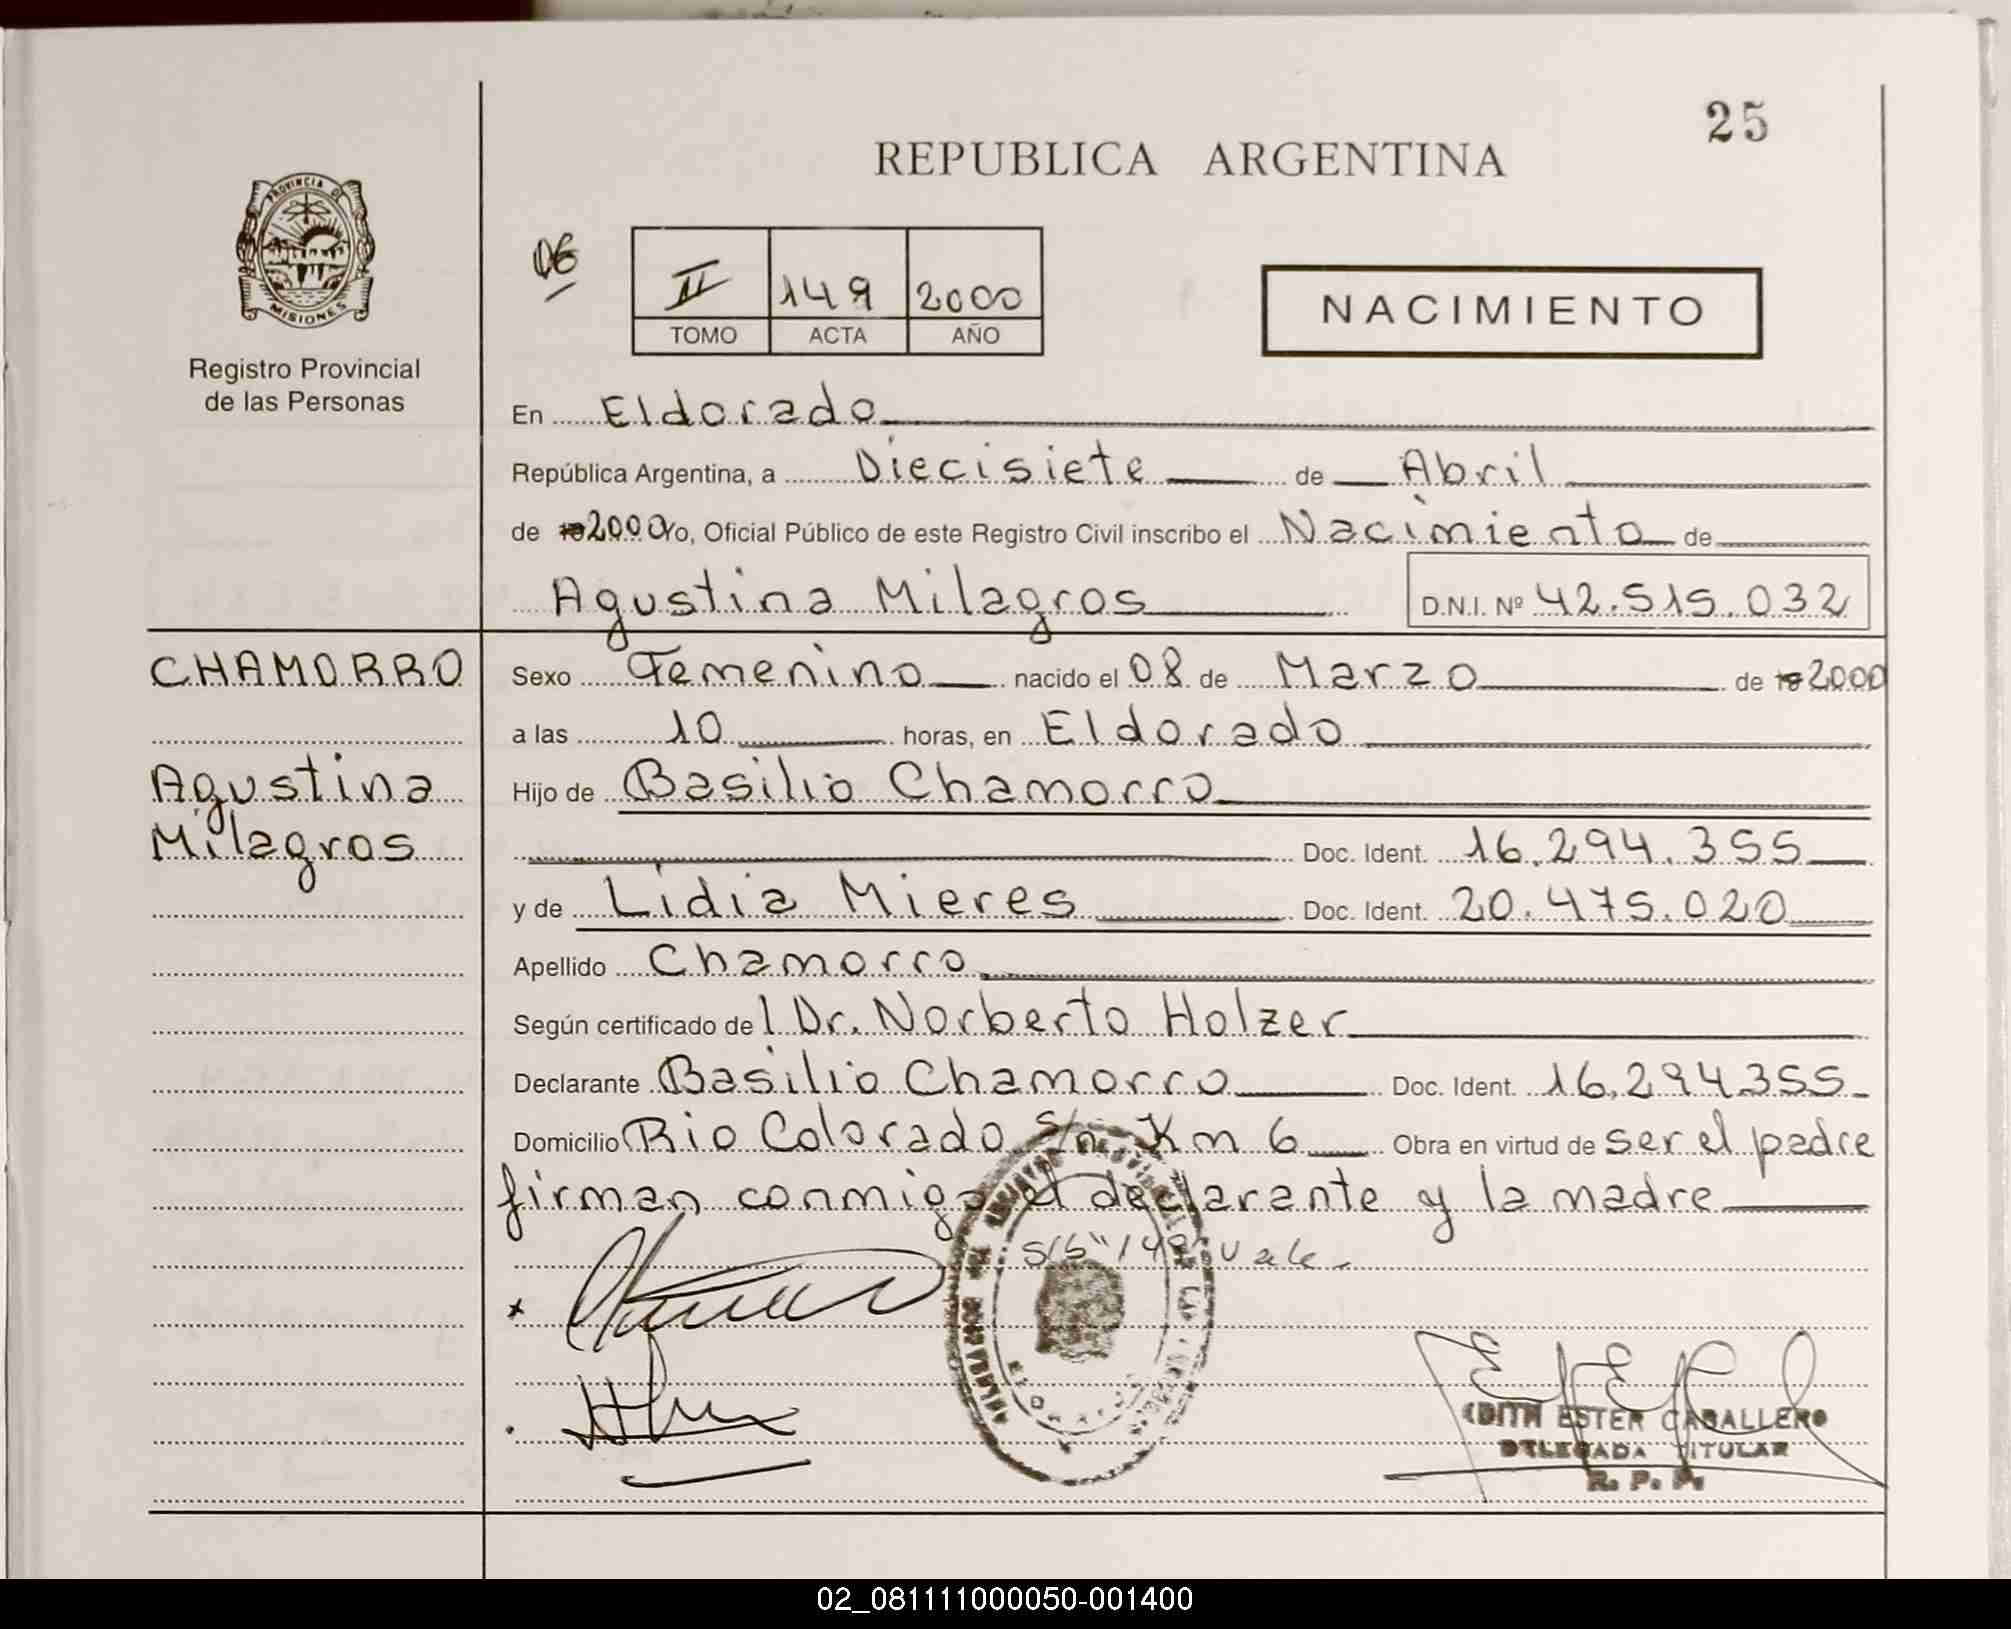 25
REPUBLICA ARGENTINA
PROVINCIA DE
MISIONES
Registro Provincial
de las Personas
06
II 149 2000
TOMO ACTA AÑO
NACIMIENTO
En Eldorado
República Argentina, a Diecisiete de Abril
de 19 2000 Yo, Oficial Público de este Registro Civil inscribo el Nacimiento de
Agustina Milagros D.N.I. Nº 42.515.032
CHAMORRO
Agustina
Milagros
Sexo Femenino nacido el 08 de Marzo de 19 2000
a las 10 horas, en Eldorado
Hijo de Basilio Chamorro
Doc. Ident. 16.294.355
y de Lidia Mieres Doc. Ident. 20.475.020
Apellido Chamorro
Según certificado del Dr. Norberto Holzer
Declarante Basilio Chamorro Doc. Ident. 16.294355
Domicilio Rio Colorado s/n Km 6 Obra en virtud de ser el padre
firman conmigo el declarante y la madre
S/b "149" Vale
EDITH ESTER CABALLERO
DELEGADA TITULAR
R. P. P.
02_081111000050-001400